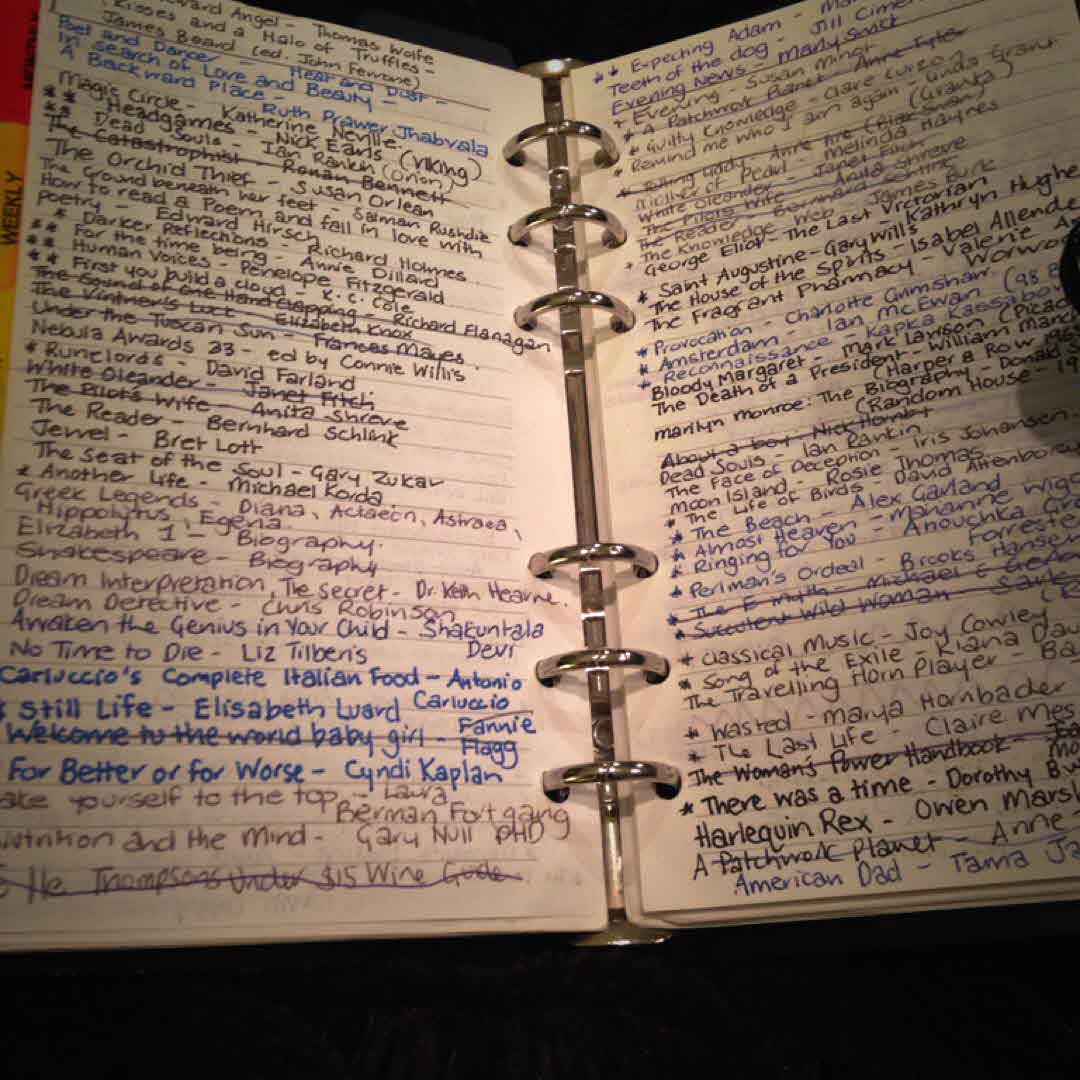 Angel - Thomas Wolfe
Kisses and a Halo of Truffles -
James Beard (ed. John Ferrone)
Poet and Dancer - Heat and Dust -
In search of Love and Beauty -
A Backward Place - Ruth Prawer Jhabvala
Magic Circle - Katherine Neville
** Headgames - Nick Earls (Viking)
** Dead Souls - Ian Rankin (Orion)
The Catastrophist - Ronan Bennett
The Orchid Thief - Susan Orlean
The Ground beneath her feet - Salman Rushdie
How to read a Poem and fall in love with
Poetry - Edward Hirsch
** Darker Reflections - Richard Holmes
** For the time being - Annie Dillard
** Human Voices - Penelope Fitzgerald
** First you build a cloud - K.C. Cole
The Sound of One Hand Clapping - Richard Flanagan
The Vintner's Luck - Elizabeth Knox
Under the Tuscan Sun - Frances Mayes
Nebula Awards 33 - ed by Connie Willis
* Runelords - David Farland
White Oleander - Janet Fitch
The Pilots Wife - Anita Shreve
The Reader - Bernhard Schlink
Jewel - Bret Lott
The Seat of the Soul - Gary Zukav
* Another Life - Michael Korda
Greek Legends - Diana, Actaeon, Astraea,
Hippolytus, Egeria.
Elizabeth 1 - Biography.
Shakespeare - Biography
Dream Interpretation, The Secret - Dr. Keith Hearne.
Dream Detective - Chris Robinson
Awaken the Genius in Your Child - Shakuntala
Devi
No Time to Die - Liz Tilberis
Carluccio's Complete Italian Food - Antonio
Carluccio
Still Life - Elisabeth Luard
Welcome to the world baby girl - Fannie
Flagg
For Better or for Worse - Cyndi Kaplan
yourself to the top - Laura
Berman Fortgang
and the Mind - Gary Null PHD
Thompsons Under $15 Wine Guide.
WEEKLY
** Expecting Adam -
Teeth of the dog - Jill
Evening News - Marly Swick
+ Evening - Susan Minot
* A Patchwork Planet - Anne Tyler
* Guilty Knowledge - Claire
Remind me who I am again - Linda Grant
(Granta)
Mother of Pearl - Melinda Haynes
White Oleander - Janet Fitch
The Pilots Wife - Anita Shreve
The Reader - Bernhard Schlink
The Knowledge Web - James Burke
George Eliot - The Last Victorian
Kathryn Hughe
* Saint Augustine - Gary Wills
The House of the Spirits - Isabel Allende
The Fragrant Pharmacy - Valerie
Worwoo
* Provocation - Charlotte Grimshaw
* Amsterdam - Ian McEwan
+ Reconnaissance - Kapka Kassabo
Bloody Margaret - Mark Lawson (Picad
The Death of a President - William Manc
(Harper & Row
marilyn monroe: The Biography - Donald
(Random House - 19
About a boy - Nick Hornby
Dead Souls - Ian Rankin
The Face of Deception - Iris Johansen
Moon Island - Rosie Thomas
* The Life of Birds - David Attenborou
* The Beach - Alex Garland
* Almost Heaven - Marianne Wigg
* Ringing for You - Anouchka
Forreste
* Perlman's Ordeal - Brooks Hansen
* The E myth - Michael E Gerber
* Succulent Wild Woman - Sark
* Classical Music - Joy Cowley
* Song of the Exile - Kiana Dav
The Travelling Horn Player - Ba
* Wasted - Marya Hornbacher
* The Last Life - Claire Mess
The Woman's Power Handbook -
* There was a time - Dorothy
Harlequin Rex - Owen Marsh
A Patchwork Planet - Anne
American Dad - Tama Ja